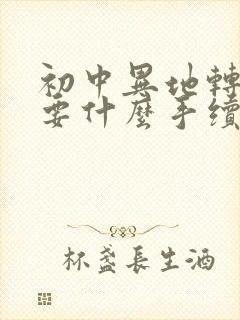 初中異地轉
要什麼手續
杯盞長生酒